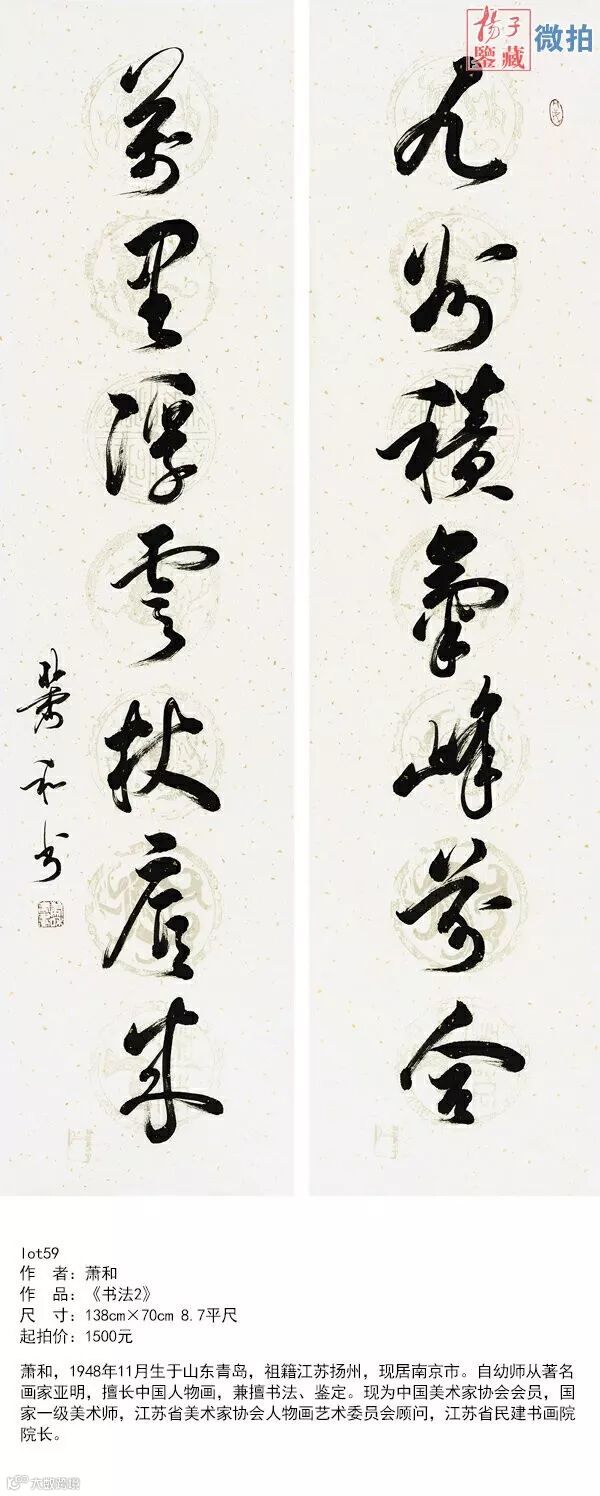 揚子
鑒藏
微拍
九州積氣峰前合
萬里浮雲杖底來
蕭和书
lot59
作 者：萧和
作 品：《书法2》
尺 寸：138cm×70cm 8.7平尺
起拍价：1500元
萧和，1948年11月生于山东青岛，祖籍江苏扬州，现居南京市。自幼师从著名
画家亚明，擅长中国人物画，兼擅书法、鉴定。现为中国美术家协会会员，国
家一级美术师，江苏省美术家协会人物画艺术委员会顾问，江苏省民建书画院
院长。
大数跨境